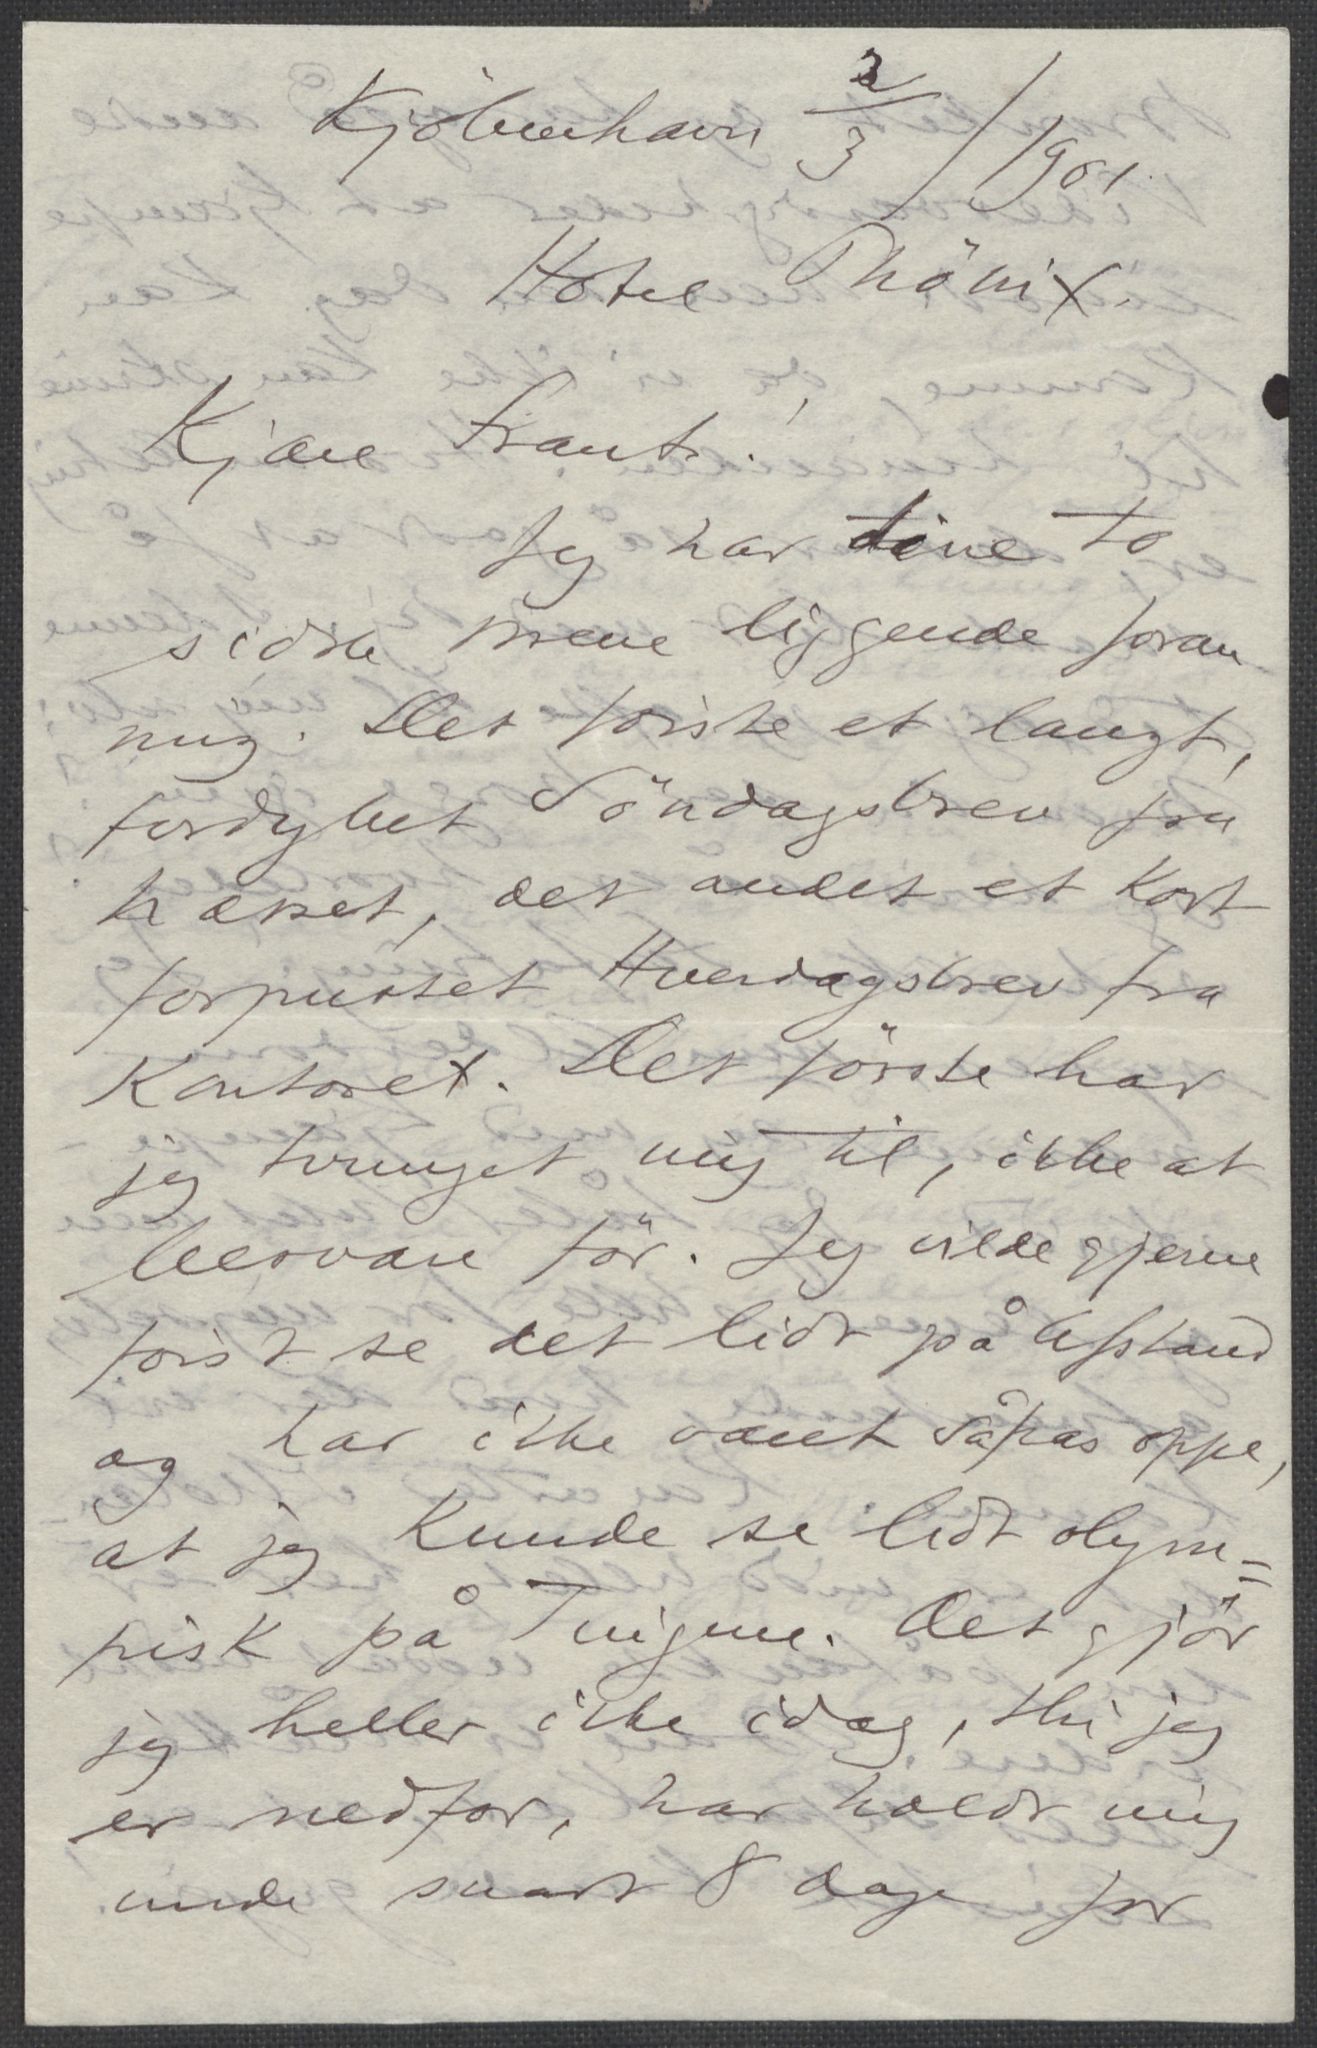 Kjöbenhavn 2/3/1901.
Hotel Phönix.
Kjære Frants!
Jeg har dine to
sidste breve liggende foran
mig. Det første et langt,
fordybet Söndagsbrev fra
Næsset, det andet et kort
forpustet Hverdagsbrev fra
Kontoret. Det förste har
jeg tvunget mig til, ikke at
besvare för. Jeg vilde gjerne
först se det lidt på Afstand
og har ikke været såpas oppe,
at jeg kunde se lidt olym=
pisk på Tingene. Det gjör
jeg heller ikke idag, thi jeg
er nedfor, har holdt mig
inde snart 8 dage for